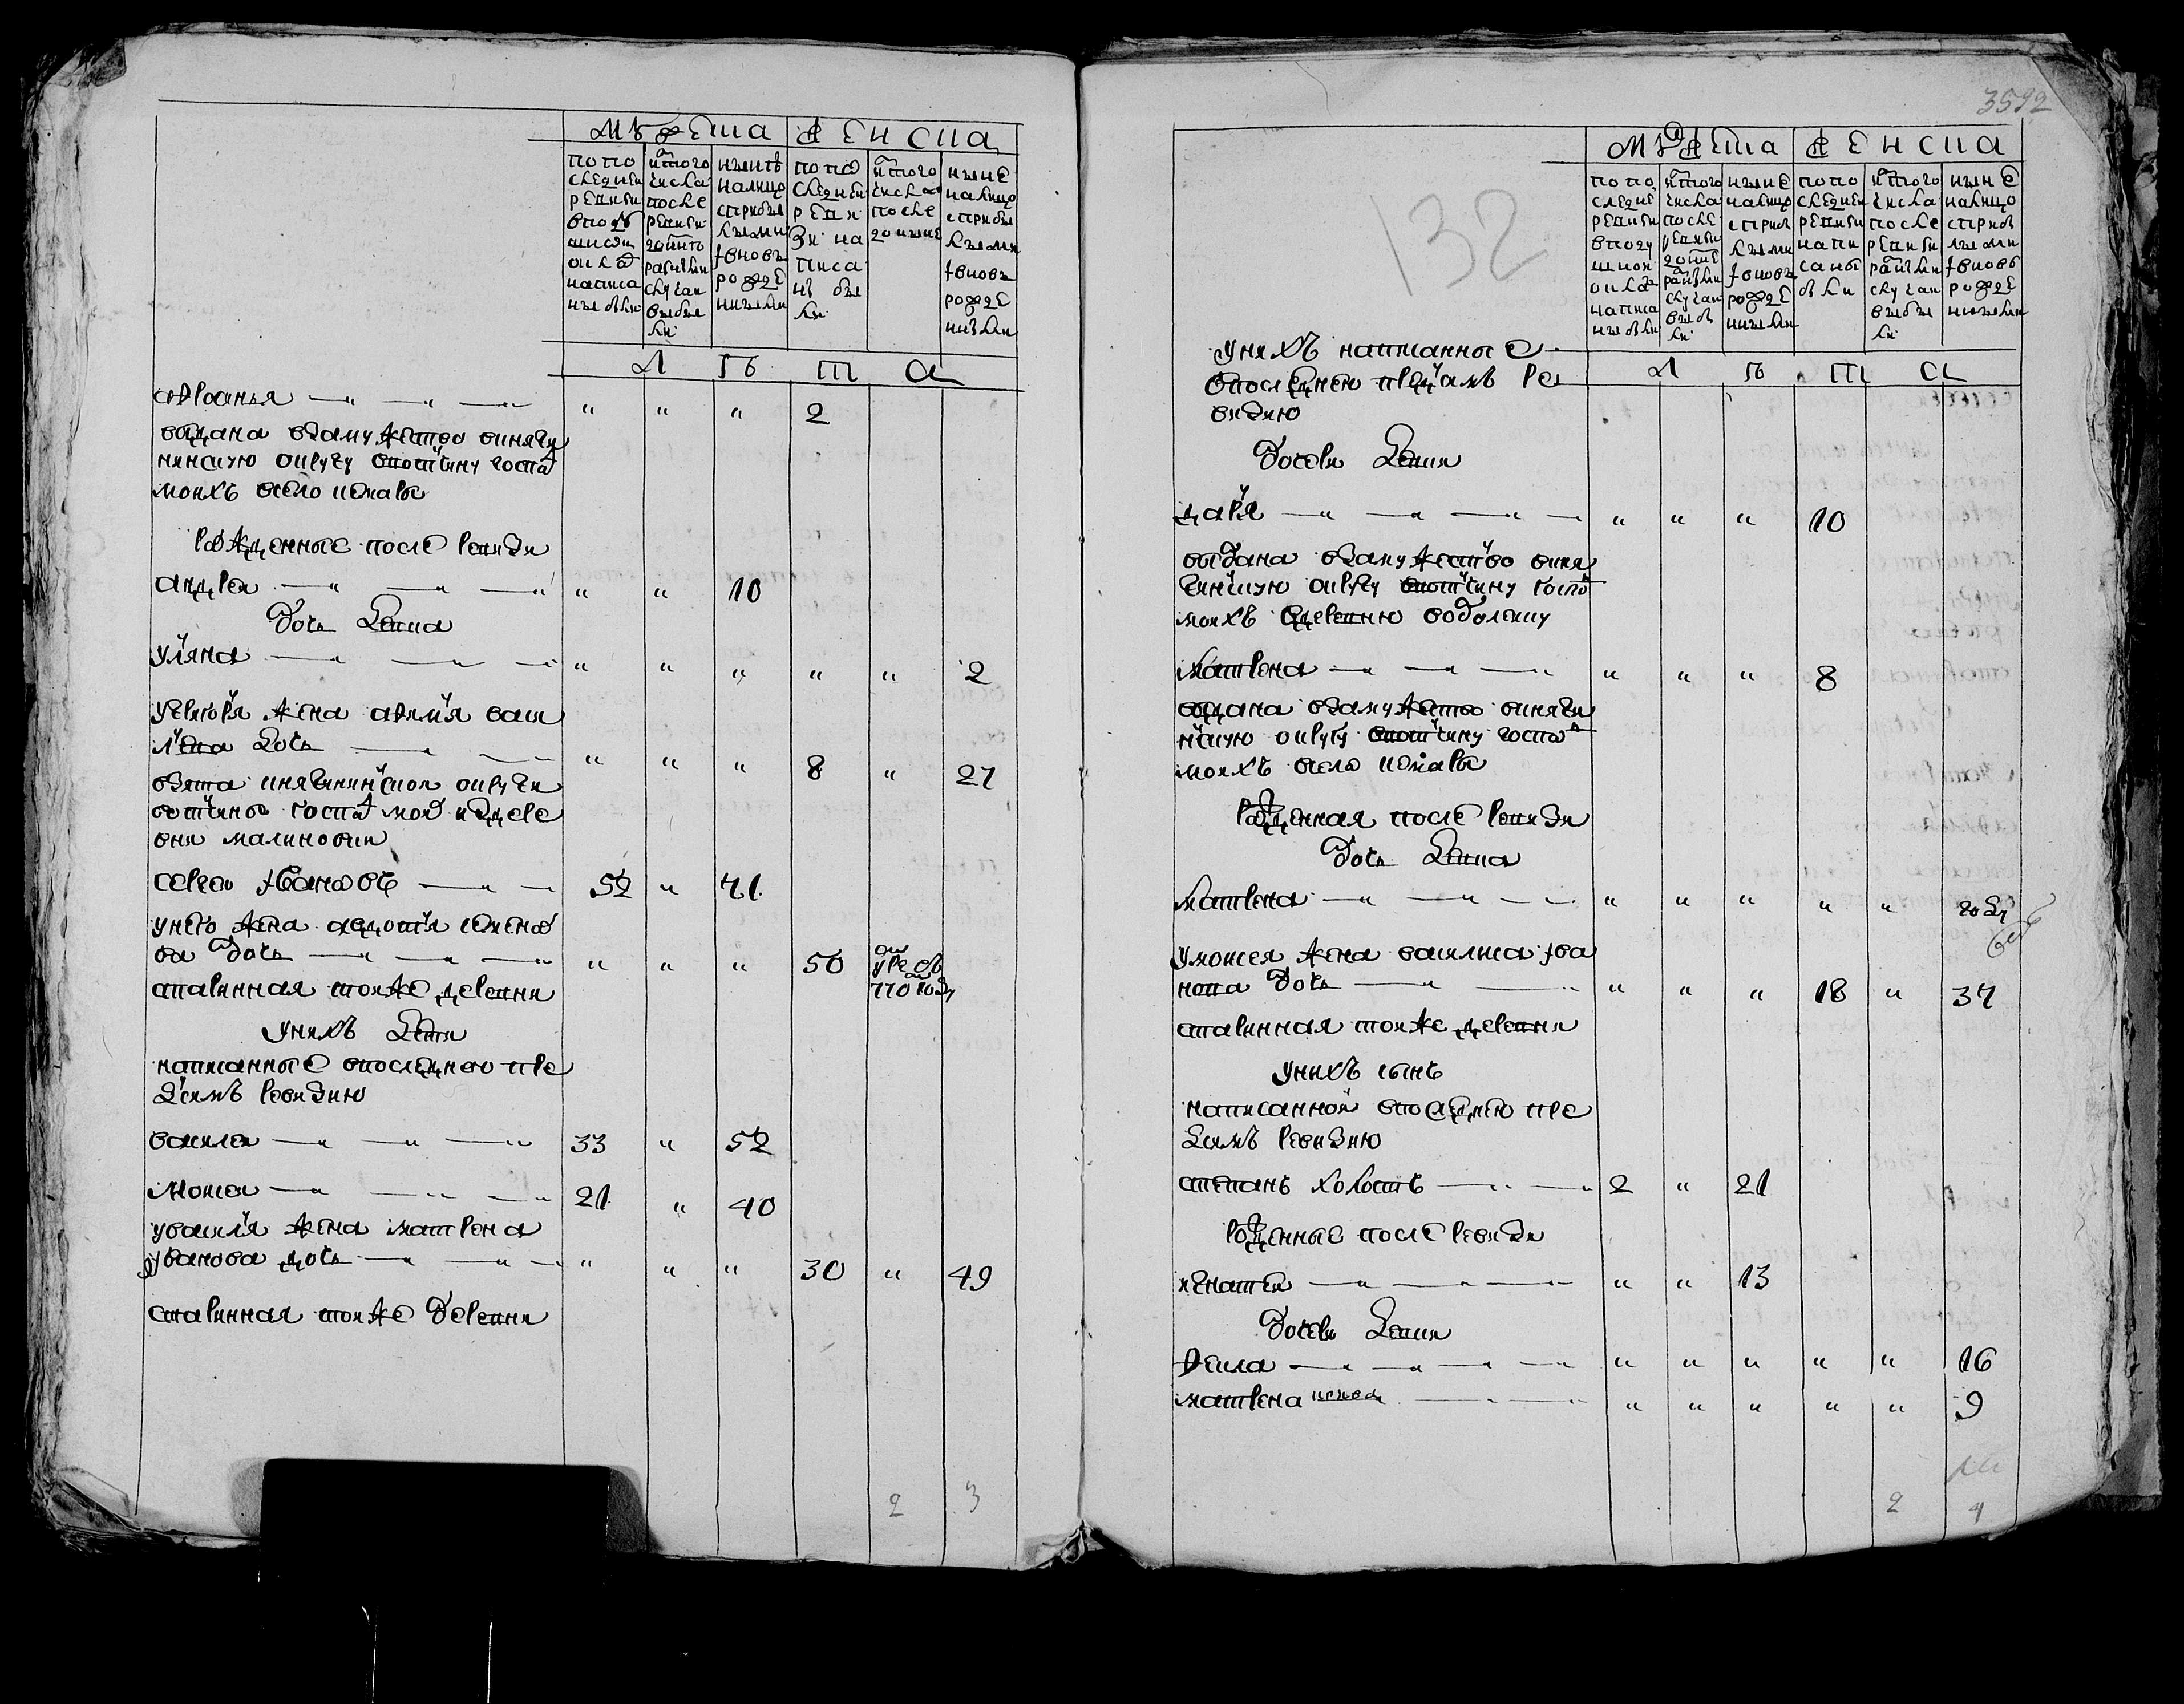 мужеска женска
по по следней ревизи в подушном окладе написаны были
ис того числа после ревизи до ныне разными случаи выбыли
ныне налицо с прибылыми и вновь рожденными
по последней ревизи написаны были
ис того числа после до ныне
ныне налицо с прибылыми и вновь рожденными
л ѣ т а
" " " 2
выдана взамужество в княги
нинскую округу в вотчину госпо
моихъ в село
рожденные после ревизи
андреи " " 10
дочь девка
уляна " " " " " 2
у григоря жена афимя васи
лева дочь " " " 8 " 27
взята княгининской округи
вотчины госпо мои из дере
вни малиновки
сергеи ивановъ 52 " 71
у него жена авдотя семено
ва дочь " " " 50
старинная тои же деревни
у нихъ дети
написанные в последнею пре
димъ ревизию
василеи 33 " 52
моисеи 21 " 40
у василя жена матрена
иванова дочь " " " 30 " 49
старинная тои же деревни
2 3
3592
132
мужеска женска
по по следней ревизи в подушном окладе написаны были
ис того числа после ревизи до ныне разными случаи выбыли
ныне налицо с прибылыми и вновь рожденными
по последней ревизи написаны были
ис того числа после ревизи разными случаи выбыли
ныне налицо с прибылыми и вновь рожденными
л ѣ т а
у нихъ написанные
в последнею предидамъ ре
визию
дочери девки
даря " " " 10
выдана взамужество в кня
гинискую округу вотчину госпо
моихъ в деревню
матрена " " " 8
выдана взамужество в княги
нскую округу вотчину госпо
моихъ в село
рожденная после ревизи
дочь девка
матрена " " " " "
у моисея жена василиса ива
нова дочь " " " 18 " 37
старинная тои же деревни
у нихъ сынъ
написанной в последнею пре
димъ ревизию
степанъ холостъ 2 " 21
рожденные после ревизи
игнатеи " " 13
дочери девки
фекла " " " " " 16
матрена " " " " " 9
2 4